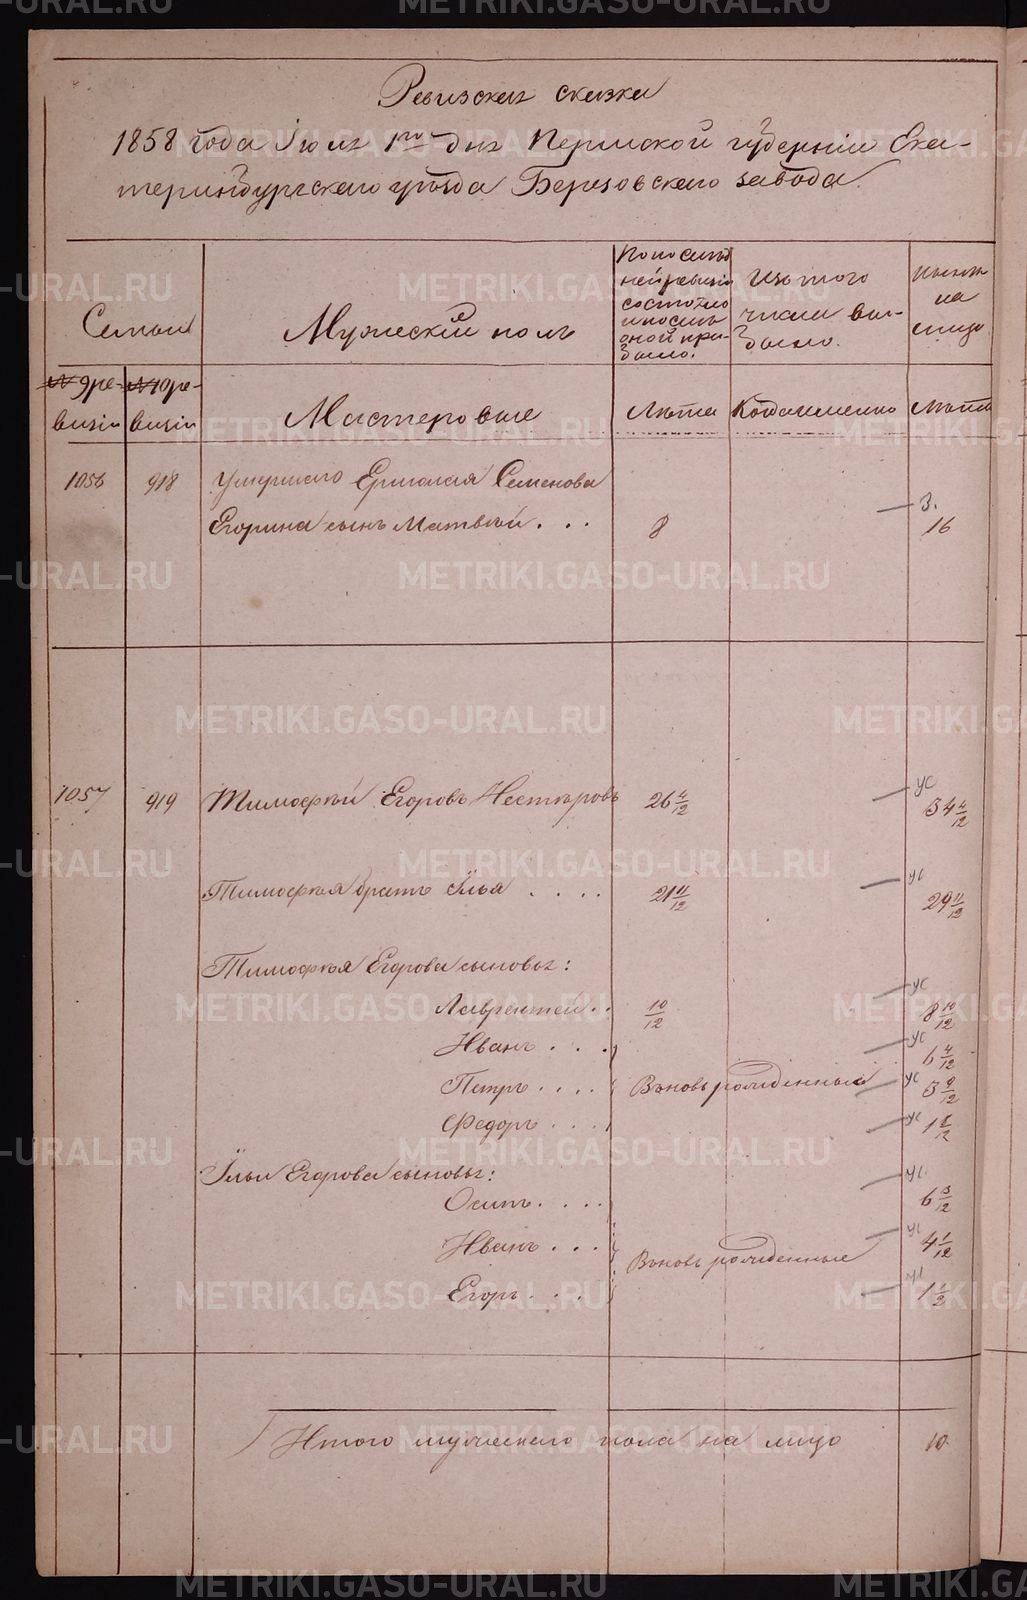 Ревизская сказка
1858 года Іюля 1го дня Пермской губерніи Ека-
теринбургскаго уѣзда Березовскаго завода.
Семьи
Мужескій полъ
По послѣд
ней ревизіи
состояло
и послѣ
оной при-
было.
Изъ того
числа вы-
было.
Нынѣ
на
лицо
№ 9 ре-
визіи
№ 10 ре-
визіи
Мастеровые
Лѣта
Когда именно
Лѣта
1056 918 Умершаго Ермолая Семенова
Егорина сынъ Матвѣй . . . 8 З. 16
1057 919 Тимофѣй Егоровъ Нестѣровъ 26 4/12 ус 34 4/12
Тимофѣя братъ Илья . . . . 21 11/12 ус 29 11/12
Тимофѣя Егорова сыновья:
Лаврентей . . 10/12 ус 8 10/12
Иванъ . . . ус 6 4/12
Петръ . . . . Вновь рожденный ус 3 9/12
Федоръ . . . ус 1 8/12
Ильи Егорова сыновья:
Осипъ . . . . ус 6 3/12
Иванъ . . . Вновь рожденные ус 4 1/12
Егоръ . . . ус 1 1/2
Итого мужескаго пола на лицо 10
METRIKI.GASO-URAL.RU